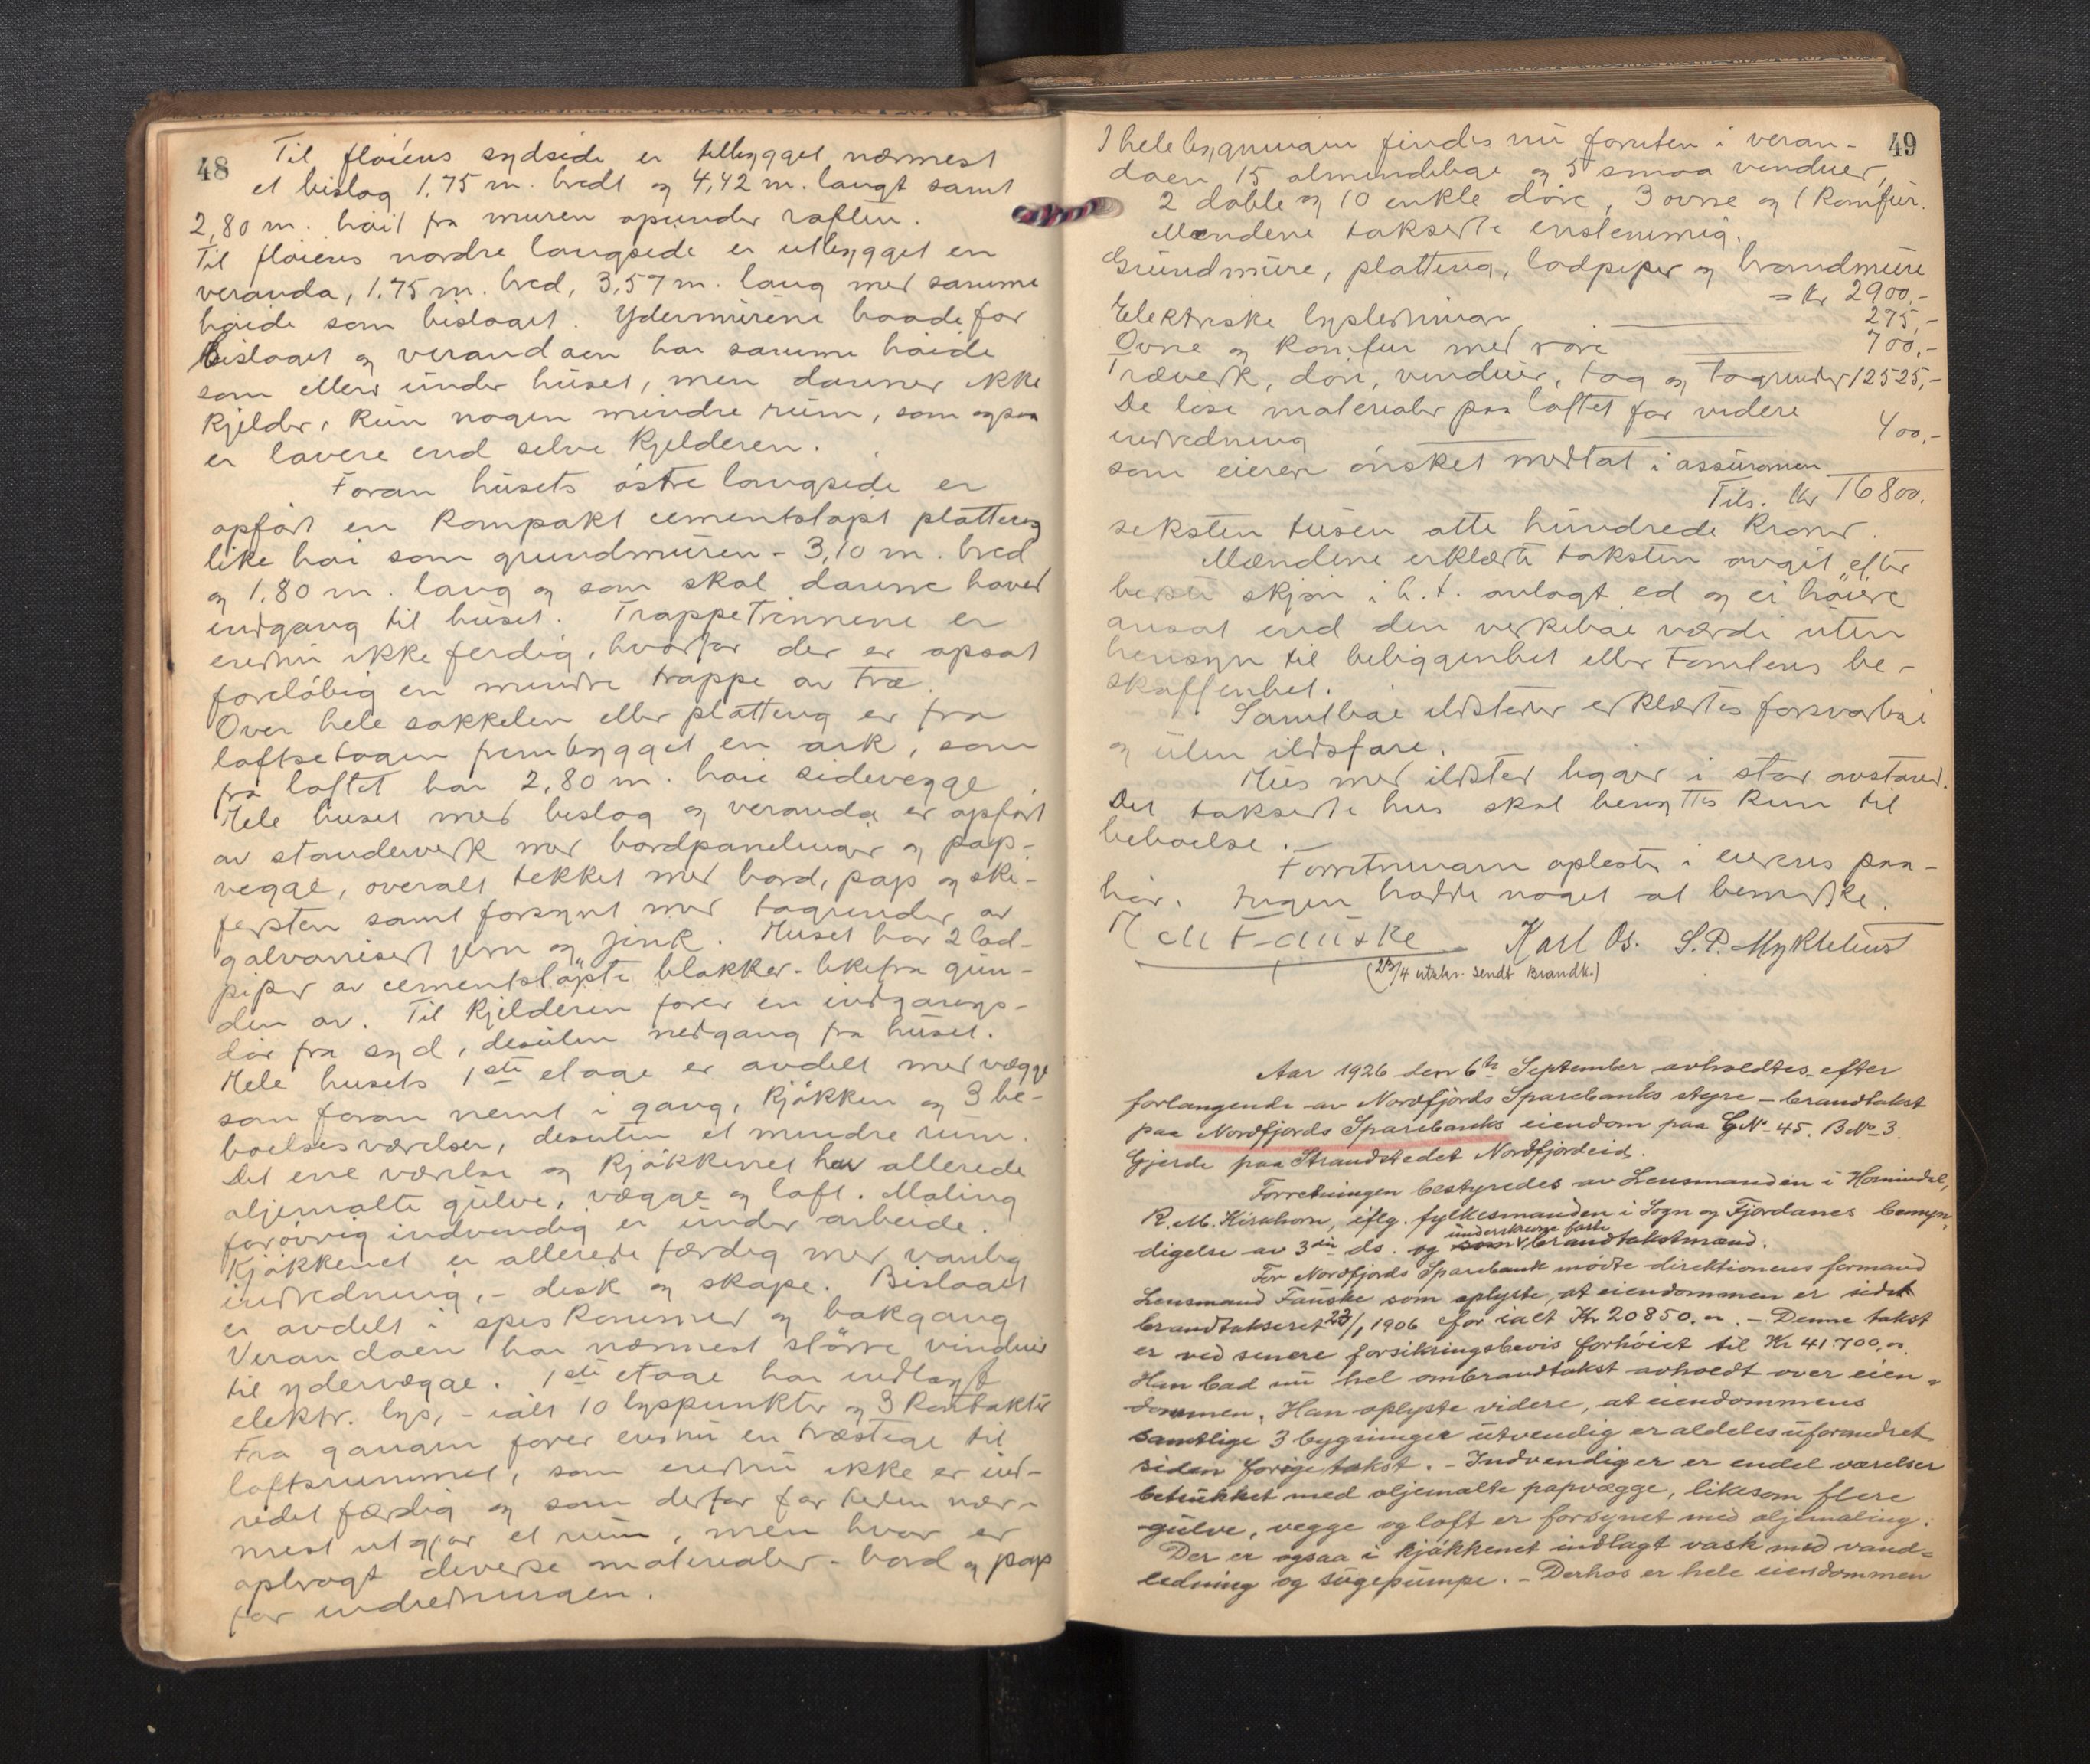 48
Til fløiens sydside er tilbygget nærmest
et bislag 1,75 m. bredt og 4,42 m. langt samt
2,80 m. høit fra muren opunder raften.
Til fløiens nordre langside er utbygget en
veranda, 1,75 m. bred, 3,57 m. lang med samme
høide som bislaget. Ydermurene baade for
bislaget og verandaen har samme høide
som ellers under huset, men danner ikke
kjelder, kun nogen mindre rum, som ogsaa
er lavere end selve kjelderen.
Foran husets østre langside er
opført en kompakt cementstøpt platting
like høi som grundmuren - 3,10 m. bred
og 1.80 m. lang og som skal danne hoved
indgang til huset. Trappetrinnene er
endnu ikke ferdig, hvorfor der er opsat
foreløbig en mindre trappe av træ.
Over hele sokkelen eller platting er fra
loftsetagen frembygget en ark, som
fra loftet har 2,80 m. høie sidevegge
Hele huset med bislag og veranda er opført
av standerverk med bordpanelinger og pap-
vegge, overalt tekket med bord, pap og ski-
fersten samt forsynt med tagrender av
galvanisert jern og zink. Huset har 2 lod-
piper av cementstøpte blokker - likefra grun-
den av. Til kjelderen fører en indgangs-
dør fra syd, desuten nedgang fra huset.
Hele husets 1ste etage er avdelt med vægge
som foran nemt i gang, kjøkken og 3 be-
boelsesværelser, desuten et mindre rum.
Det ene værelse og kjøkkenet har allerede
oljemalte gulve, vægge og loft. Maling
forøvrig indvendig er under arbeide.
Kjøkkenet er allerede færdig med vanlig
indredning, - disk og skape. Bislaget
er avdelt i spiskammer og bakgang
Verandaen har nærmest større vinduer
til ydervægge. 1ste etage har indlagt
elektr. lys, - ialt 10 lyspunkter og 3 kontakter
Fra gangen fører endnu en træstige til
loftsrummet, som endnu ikke er ind-
redet færdig og som derfor for tiden nær-
mest utgjør et rum, men hvor er
opbragt diverse materialer - bord og pap
for indredningen.
49
I hele bygningen findes nu foruten i veran-
daen 15 almindelige og 5 smaa vinduer,
2 doble og 10 enkle døre, 3 ovne og 1 komfur.
Mændene takserte enstemmig.
Grundmure, platting, lodpiper og brandmure
= Kr 2900,-
Elektriske lysledninger 275,-
Ovne og komfur med rør 700,-
Træverk, dører, vinduer, tag og tagrender 12525,-
De løse materialer paa loftet for videre
indredning 400,-
som eieren ønsket medtat i assuransen
Tils. Kr 16800.
seksten tusen otte hundrede kroner.
Mændene erklærte taksten avgit efter
beste skjøn i h. t. avlagt ed og ei høiere
ansat end den virkelige værdi uten
hensyn til beliggenhet eller tomtens be-
skaffenhet.
Samtlige ildsteder erklærtes forsvarlige
og uten ildsfare.
Hus med ildsted ligger i stor avstand.
Det takserte hus skal benyttes kun til
beboelse.
Forretningen oplestes i eierens paa-
hør. Ingen hadde noget at bemerke.
Fauske Karl Os. S. P. Myklebust
(23/4 utskr. sendt Brandk.)
Aar 1926 den 6te September avholdtes efter
forlangende av Nordfjords Sparebanks styre - brandtakst
paa Nordfjords Sparebanks eiendom paa G№ 45. B№ 3.
Gjerde paa Strandstedet Nordfjordeid.
Forretningen bestyredes av Lensmanden i Hornindal,
R. M. Kirkhorn, iflg. fylkesmanden i Sogn og Fjordanes bemyn-
digelse av 3die ds. og som underskrevne faste brandtakstmænd.
For Nordfjords Sparebank mødte direktionens formand
Lensmand Fauske som oplyste, at eiendommen er sidst
brandtakseret 23/1 1906 for ialt Kr 20850.00. - Denne takst
er ved senere forsikringsbevis forhøiet til Kr 41.700,00.
Han bad nu hel ombrandtakst avholdt over eien-
dommen. Han oplyste videre, at eiendommens
samtlige 3 bygninger utvendig er aldeles uforandret
siden forrige takst. - Indvendig er er endel værelser
betrukket med oljemalte papvægge, likesom flere
gulve, vegge og loft er forsynet med oljemaling.
Der er ogsaa i kjøkkenet indlagt vask med vand-
ledning og sugepumpe. - Derhos er hele eiendommen